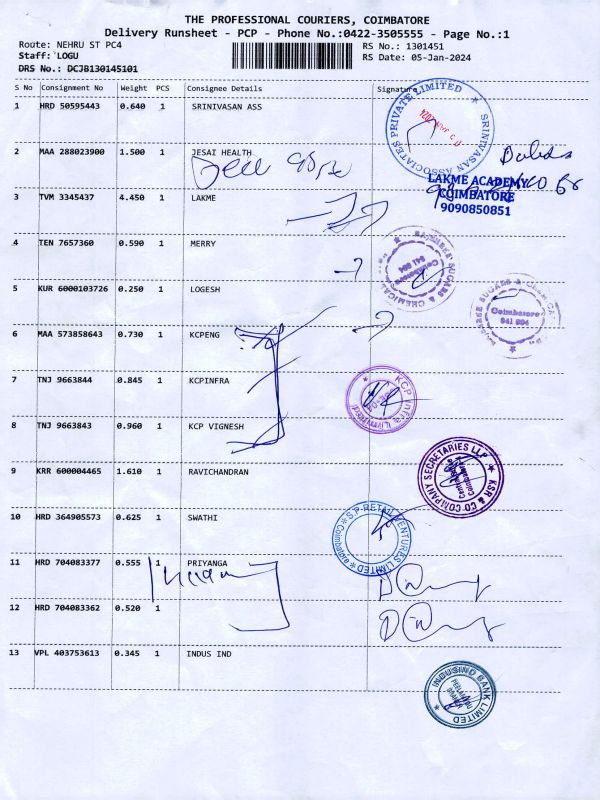 THE PROFESSIONAL COURIERS, COIMBATORE
Delivery Runsheet - PCP - Phone No.:0422-3505555 - Page No.:1
Route: NEHRU ST PC4
RS No.: 1301451
Staff: LOGU
RS Date: 05-Jan-2024
DRS No.: DCJB130145101
S No Consignment No Weight PCS Consignee Details Signature
1 HRD 50595443 0.640 1 SRINIVASAN ASS
SRINIVASAN ASSOCIATES PRIVATE LIMITED
2 MAA 288023900 1.500 1 JESAI HEALTH
LAKME ACADEMY
COIMBATORE
9090850851
3 TVM 3345437 4.450 1 LAKME
4 TEN 7657360 0.590 1 MERRY
5 KUR 6000103726 0.250 1 LOGESH
Coimbatore
641 004
6 MAA 573858643 0.730 1 KCPENG
7 TNJ 9663844 0.845 1 KCPINFRA
KCP Infra Limited
8 TNJ 9663843 0.960 1 KCP VIGNESH
9 KRR 600004465 1.610 1 RAVICHANDRAN
KSR & CO COMPANY SECRETARIES LLP
10 HRD 364905573 0.625 1 SWATHI
S.P. RETAIL VENTURES LIMITED
Coimbatore
11 HRD 704083377 0.555 1 PRIYANGA
12 HRD 704083362 0.520 1
13 VPL 403753613 0.345 1 INDUS IND
INDUSIND BANK LIMITED